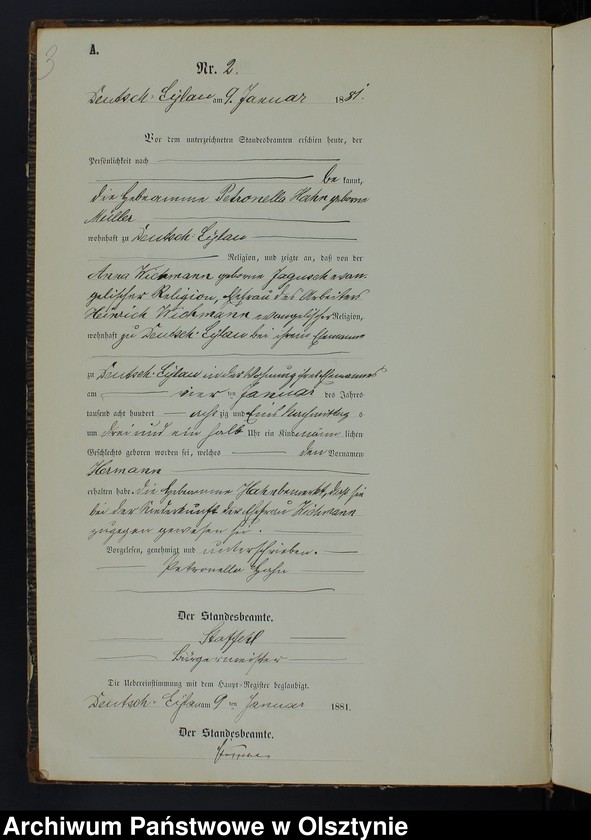 3
A.
Nr. 2.
Deutsch-Eylau am 9. Januar 1881.
Vor dem unterzeichneten Standesbeamten erschien heute, der
Persönlichkeit nach
be kannt,
die Hebeamme Petronella Hahn geborne
Müller
wohnhaft zu Deutsch-Eylau
Religion, und zeigte an, daß von der
Anna Wichmann geborne Jagusch evan-
gelischer Religion, Ehefrau des Arbeiters
Heinrich Wichmann evangelischer Religion,
wohnhaft zu Deutsch-Eylau bei ihrem Ehemanne
zu Deutsch-Eylau in der Wohnung ihres Ehemannes
am vier ten Januar des Jahres
tausend acht hundert acht zig und Eins Nachmittag s
um drei und ein halb Uhr ein Kind männ lichen
Geschlechts geboren worden sei, welches den Vornamen
Hermann
erhalten habe. Die Hebeamme Hahn bemerkt, daß sie
bei der Niederkunft der Ehefrau Wichmann
zugegen gewesen sei.
Vorgelesen, genehmigt und unterschrieben.
Petronella Hahn
Der Standesbeamte.
Bürgermeister
Die Uebereinstimmung mit dem Haupt-Register beglaubigt.
Deutsch-Eylau am 9 ten Januar 1881.
Der Standesbeamte.
Archiwum Państwowe w Olsztynie